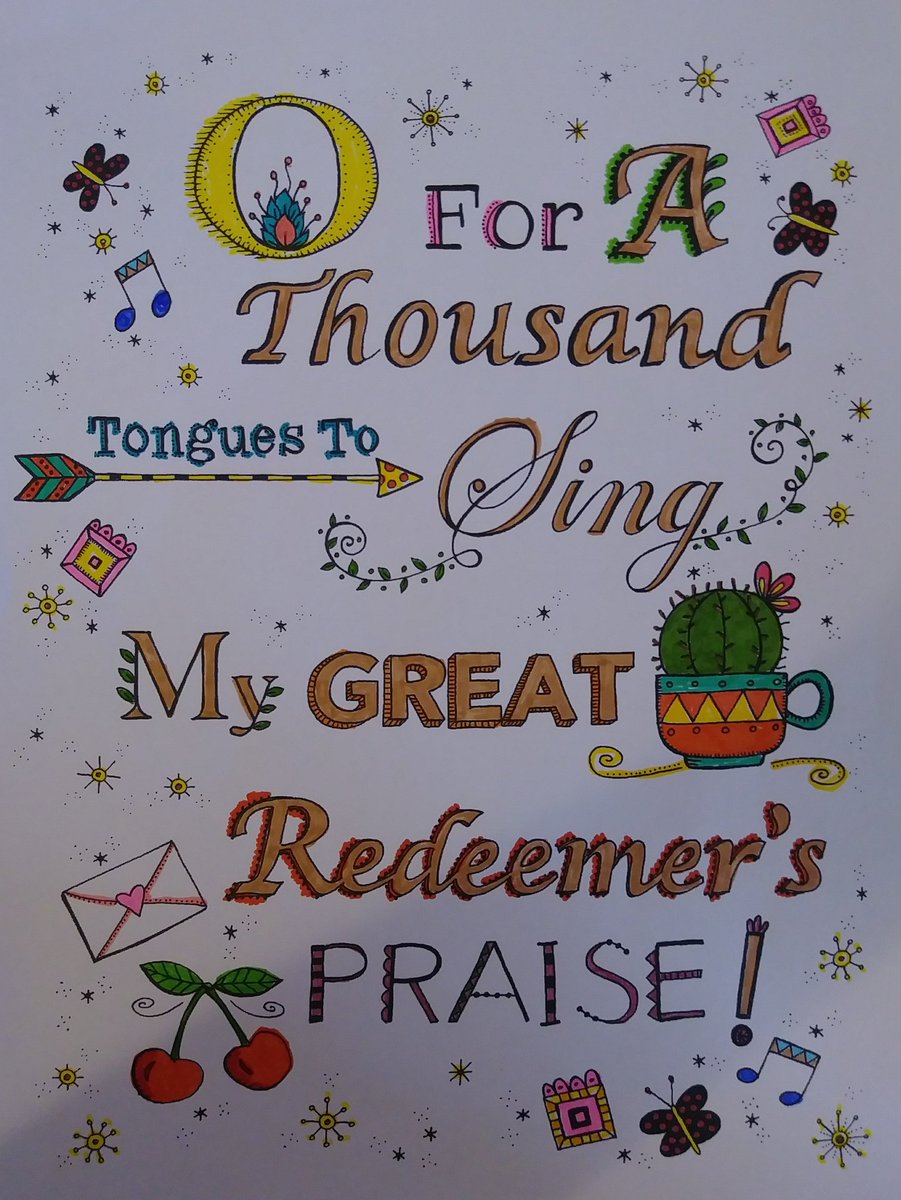 O For A
Thousand
Tongues To Sing
My GREAT
Redeemer's
PRAISE!